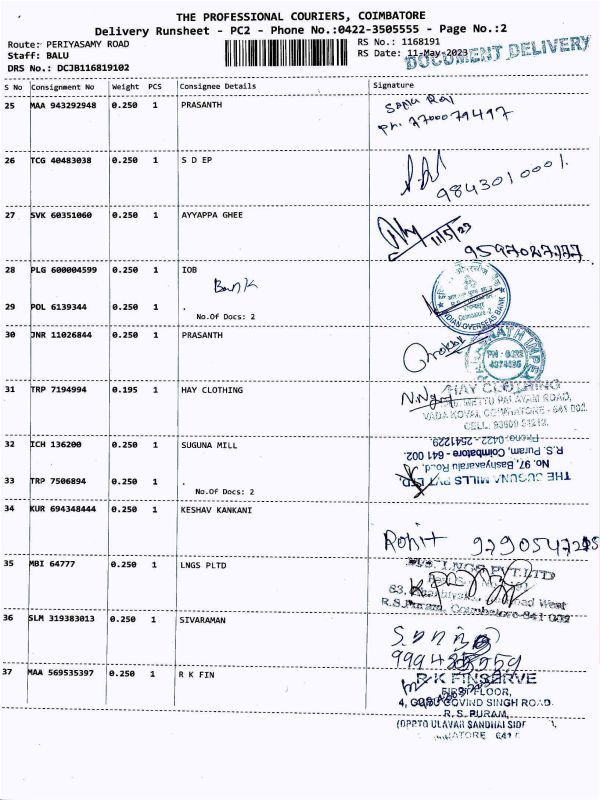 THE PROFESSIONAL COURIERS, COIMBATORE
Delivery Runsheet - PC2 - Phone No.:0422-3505555 - Page No.:2
Route: PERIYASAMY ROAD RS No.: 1168191
Staff: BALU RS Date: 11-May-2023
DOCUMENT DELIVERY
DRS No.: DCJB116819102
S No Consignment No Weight PCS Consignee Details Signature
25 MAA 943292948 0.250 1 PRASANTH
26 TCG 40483038 0.250 1 S D EP
27 SVK 60351060 0.250 1 AYYAPPA GHEE
11/5/23
28 PLG 600004599 0.250 1 IOB
Bank
INDIAN OVERSEAS BANK
29 POL 6139344 0.250 1 .
No.Of Docs: 2
30 JNR 11026844 0.250 1 PRASANTH
31 TRP 7194994 0.195 1 HAY CLOTHING
HAY CLOTHING
METTU PALAYAM ROAD,
32 ICH 136200 0.250 1 SUGUNA MILL
Phone: 0422 - 2541229
R.S. Puram, Coimbatore - 641 002.
No. 97, Bashyakaralu Road,
THE SUGUNA MILLS PVT LTD.
33 TRP 7506894 0.250 1 .
No.Of Docs: 2
34 KUR 694348444 0.250 1 KESHAV KANKANI
Rohit
35 MBI 64777 0.250 1 LNGS PLTD
M/s. LNGS PVT.LTD
R.S.Puram, Coimbatore-641 002
36 SLM 319383013 0.250 1 SIVARAMAN
37 MAA 569535397 0.250 1 R K FIN
R K FINSERVE
FIRST FLOOR,
4, GURU GOVIND SINGH ROAD.
R. S. PURAM,
(OPPTO ULAVAR SANDHAI